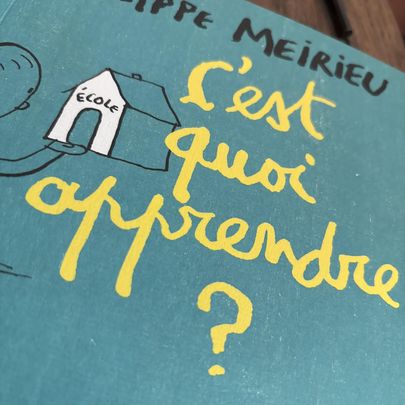 MEIRIEU
ÉCOLE
c'est
quoi
apprendre
?